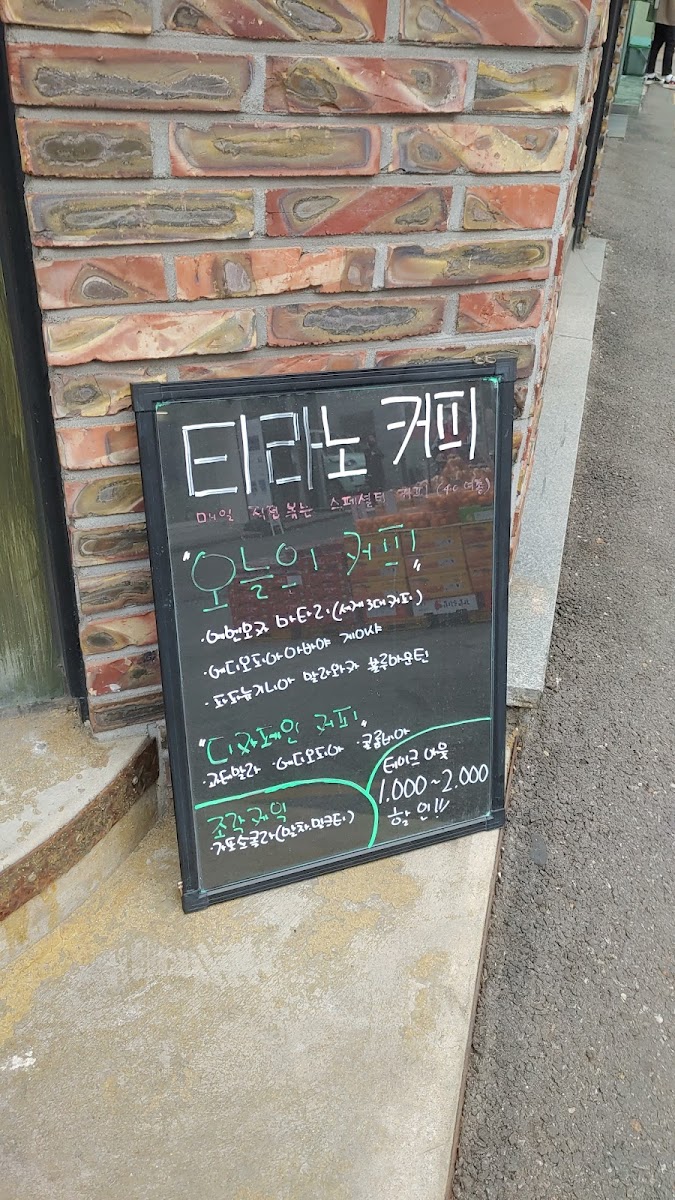 티라노 커피
매일 직접 볶는 스페셜티 커피 (40여종)
"오늘의 커피"
·예멘모카 마타리 (세계3대커피)
·에티오피아 아바야 게이샤
·파푸아뉴기니아 마라와카 블루마운틴
"디카페인 커피"
·과테말라 ·에티오피아 ·콜롬비아
조각 케익
·가또쇼콜라(말차,마크티)
테이크 아웃
1.000~2.000
할인!!